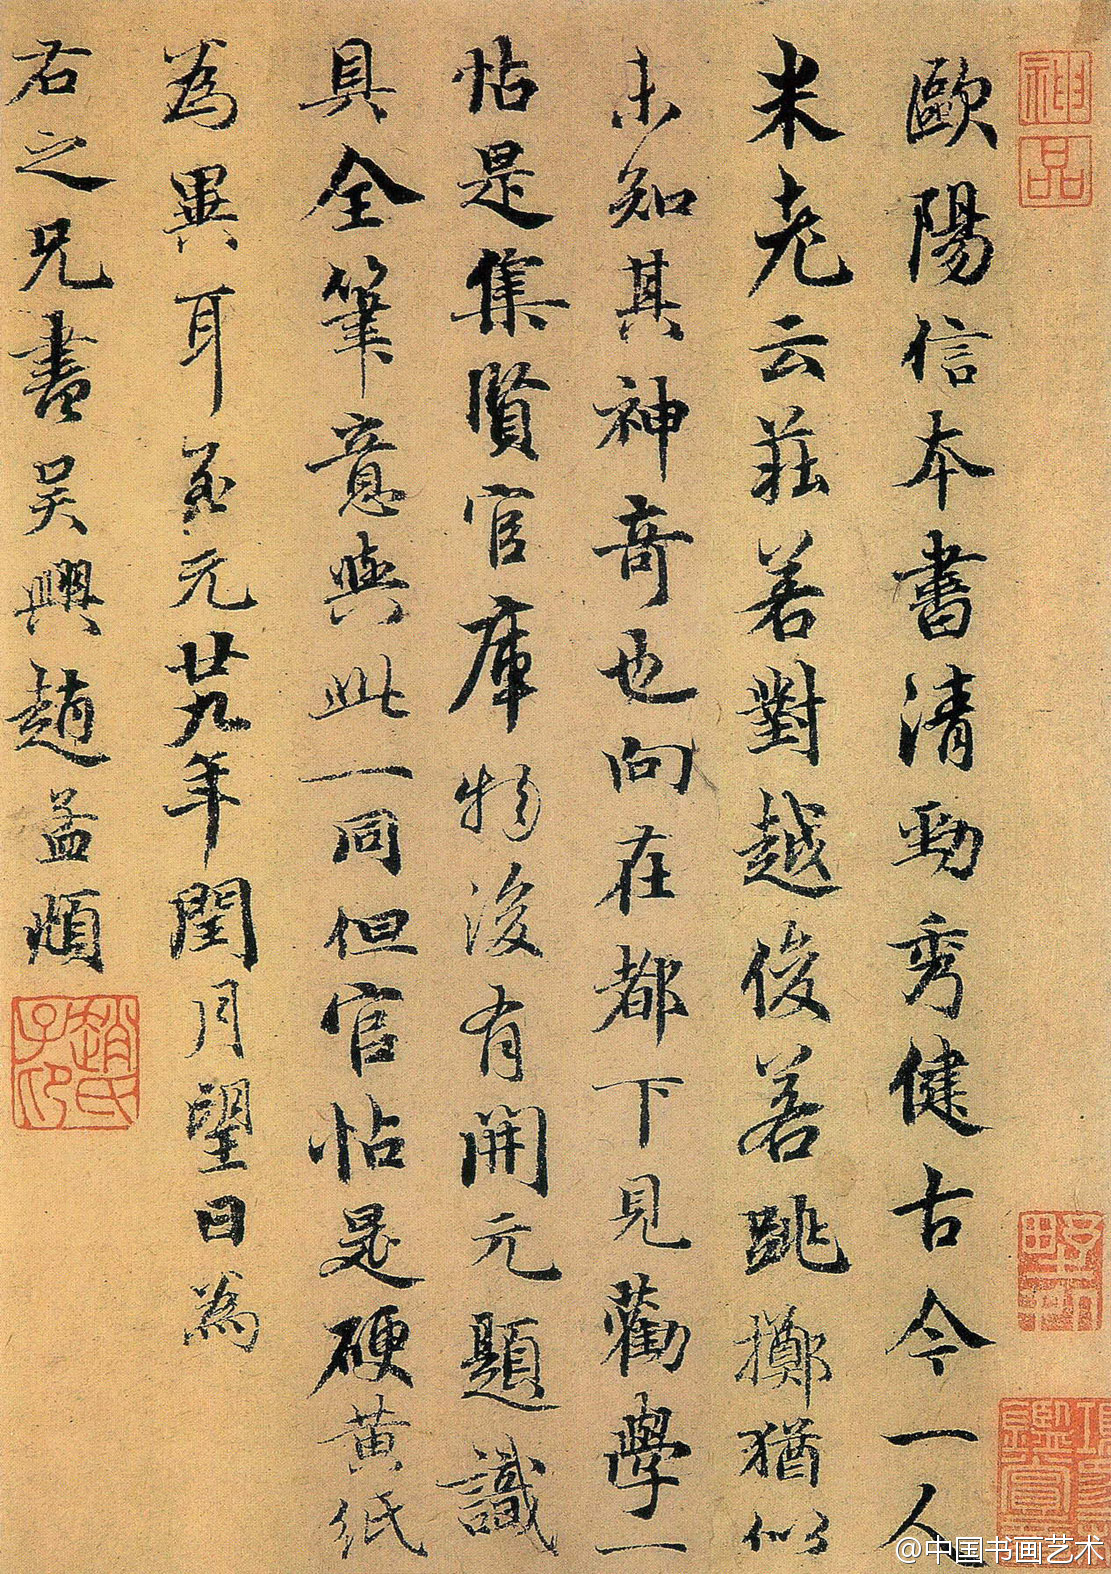 歐陽信本書清勁秀健古今一人
米老云莊若對越俊若跳擲猶似
未知其神奇也向在都下見勸學一
帖是集賢官庫物後有開元題識
具全筆意與此一同但官帖是硬黄紙
為異耳至元廿九年閏月望日為
右之兄書吳興趙孟頫
神品
趙氏子印
@中国书画艺术